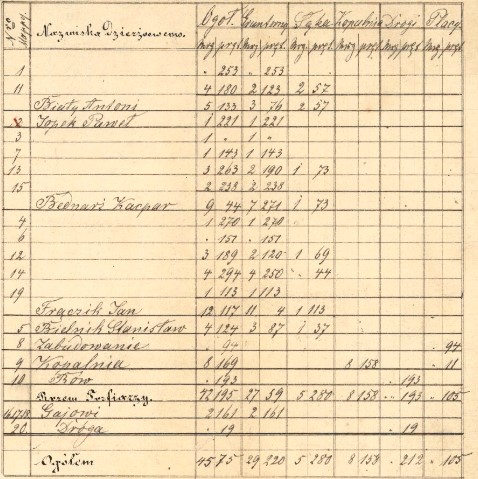 No Mappy. Nazwiska Dzierżawców. Ogół. Gruntorny Łąka Kopalnia Drogi Placy.
Mrg pręt. Mrg pręt. Mrg pręt. Mrg pręt. Mrg pręt. Mrg pręt.
1 . 253 . 253
11 4 180 2 123 2 57
Biały Antoni 5 133 3 76 2 57
2 Jopek Paweł 1 221 1 221
3 1 " 1 "
7 1 143 1 143
13 3 263 2 190 1 73
15 2 238 2 238
Bednarz Kacper 9 44 7 271 1 73
4 1 270 1 270
6 . 151 . 151
12 3 189 2 120 1 69
14 4 294 4 250 . 44
19 1 113 1 113
Frączik Jan 12 117 11 4 1 113
5 Bielnik Stanisław 4 124 3 87 1 37
8 Zabudowanie . 94 . 94
9 Kopalnia 8 169 8 158 . 11
10 Rów . 193 . 193
Razem Torfiarzy. 12 195 27 59 5 280 8 158 . 193 . 105
16.17.18 Gajowi 2 161 2 161
20. Droga . 19 . 19
Ogółem 45 75 29 220 5 280 8 158 . 212 . 105